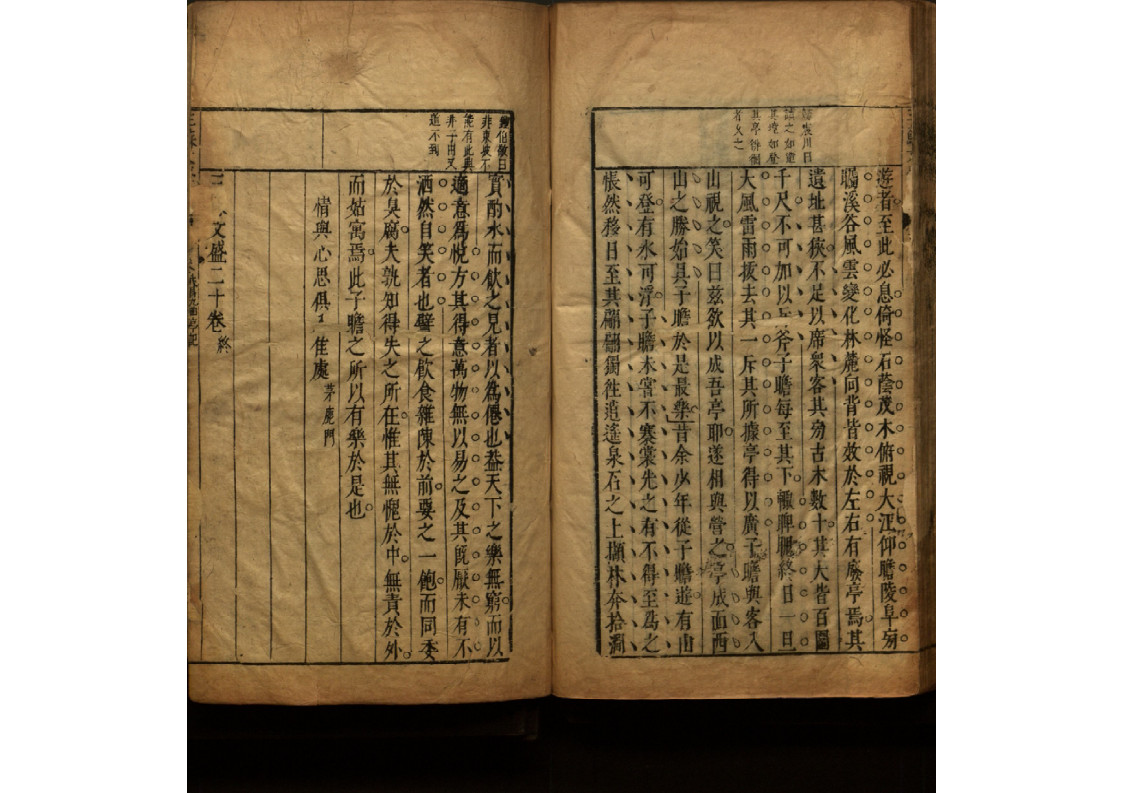 遊者至此必息倚怪石蔭茂木俯視大江仰瞻陵阜旁
矚溪谷風雲變化林麓向背皆效於左右有廢亭焉其
遺址甚狹不足以席衆客其旁古木數十其大皆百圍
千尺不可加以斤斧子瞻每至其下輙睥睨終日一旦
大風雷雨拔去其一斥其所據亭得以廣子瞻與客入
山視之笑曰兹欲以成吾亭耶遂相與營之亭成而西
山之勝始具子瞻於是最樂昔余少年從子瞻遊有山
可登有水可浮子瞻未嘗不褰裳先之有不得至爲之
悵然移日至其翩翩獨徃逍遙泉石之上擷林卉拾澗
川曰
之如
其 如登
其亭徘徊
者久之
實酌水而飲之見者以爲僊也盖天下之樂無窮而以
適意爲悅方其得意萬物無以易之及其旣厭未有不
洒然自笑者也譬之飲食雜陳於前要之一飽而同委
於臭腐夫孰知得失之所在惟其無愧於中無責於外
而姑寓焉此子瞻之所以有樂於是也
伯敬曰
非東坡不
能有此興
非子由又
道不到
情與心思俱 隹處 茅鹿門
三 文盛二十卷 終